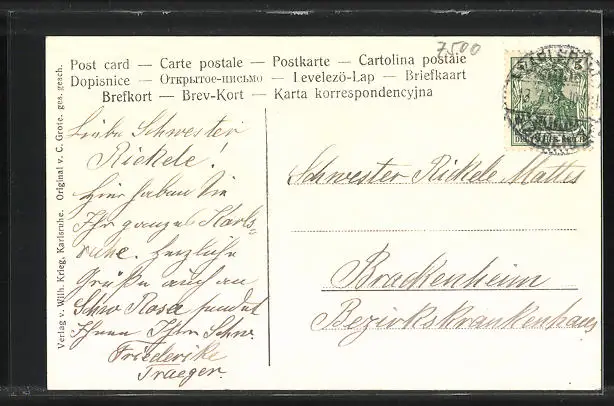 7500
Post card — Carte postale — Postkarte — Cartolina postale
Dopisnice — Открытое-письмо — Levelező-Lap — Briefkaart
Brefkort — Brev-Kort — Karta korrespondencyjna
Verlag v. Wilh. Krieg, Karlsruhe. Original v. C. Grote. ges. gesch.
Liebe Schwester
Rickele!
Hier haben Sie
Ihr ganzes Karls-
ruhe. Herzliche
Grüße auch an
Schw Rosa sendet
Ihnen Ihre Schw.
Friederike
Traeger.
Schwester Rickele Mattes
Brackenheim
Bezirkskrankenhaus